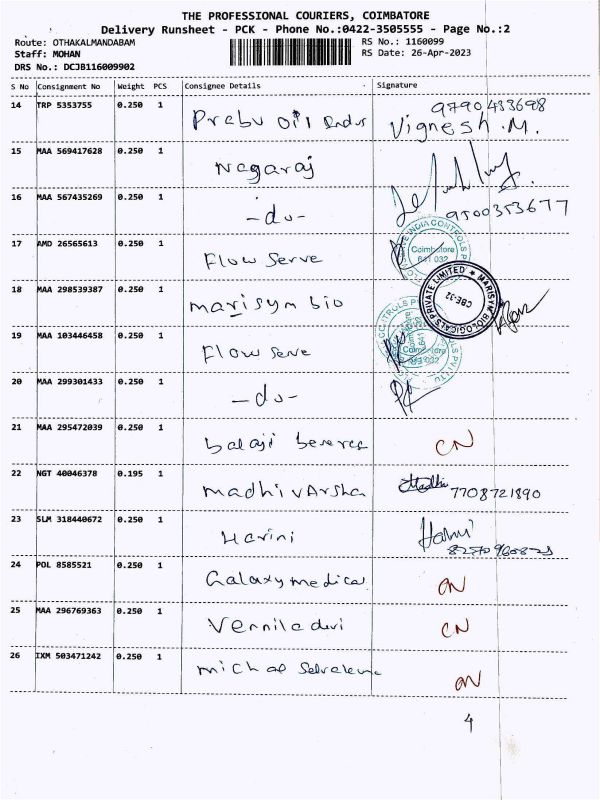 THE PROFESSIONAL COURIERS, COIMBATORE
Delivery Runsheet - PCK - Phone No.:0422-3505555 - Page No.:2
Route: OTHAKALMANDABAM
Staff: MOHAN
DRS No.: DCJB116009902
RS No.: 1160099
RS Date: 26-Apr-2023
S No Consignment No Weight PCS Consignee Details Signature
14 TRP 5353755 0.250 1 Prabu Oil 9790433698
Vignesh.M.
15 MAA 569417628 0.250 1 Nagaraj
16 MAA 567435269 0.250 1 -do- 9500353677
17 AMD 26565613 0.250 1 Flow Serve
INDIA CONTROLS
Coimbatore
641 032
18 MAA 298539387 0.250 1 marisym bio
MARISYM BIOLOGICALS PRIVATE LIMITED
CBE-32
19 MAA 103446458 0.250 1 Flow Serve
20 MAA 299301433 0.250 1 -do-
21 MAA 295472039 0.250 1 balaji CN
22 NGT 40046378 0.195 1 madhivArsha 7708721890
23 SLM 318440672 0.250 1 Harini
24 POL 8585521 0.250 1 Galaxy medical CN
25 MAA 296769363 0.250 1 Verniladevi CN
26 IXM 503471242 0.250 1 CN
4